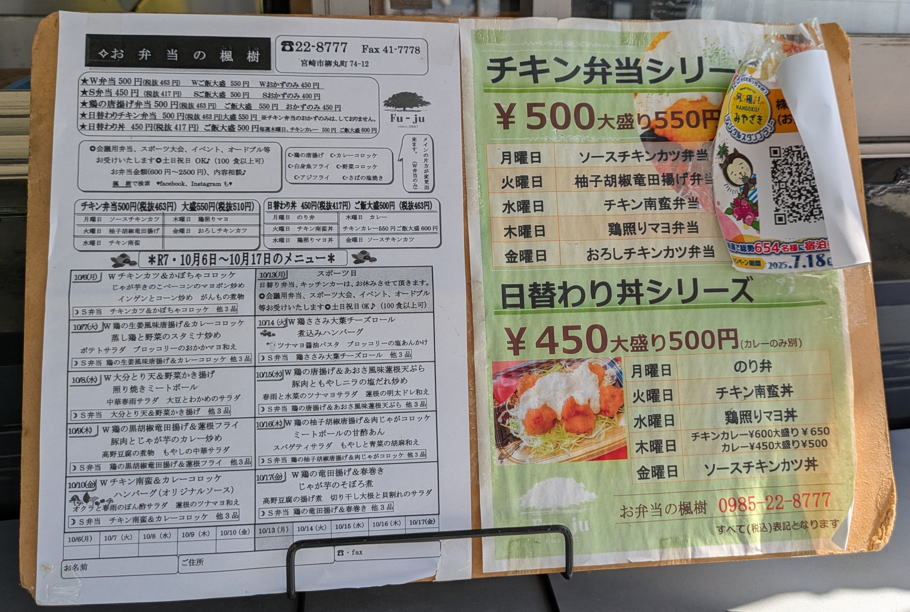 ✧お弁当の楓樹
☎22-8777 Fax 41-7778
宮崎市柳丸町 74-12
★W弁当 500円(税抜463円) Wご飯大盛 550円 Wおかずのみ 450円
★S弁当 450円(税抜417円) Sご飯大盛 500円 Sおかずのみ 400円
★鶏の唐揚げ弁当 500円(税抜463円) ご飯大盛 550円 おかずのみ 450円
★日替わりチキン弁当 500円(税抜463円)大盛550円 ※チキン弁当のおかずのみは、しておりません。
★日替わり丼 450円(税抜417円) ご飯大盛 500円
Fu-ju
✪会議用弁当、スポーツ大会、イベント、オードブル等
お受けいたします✪土日祝日 OK♪(100食以上可)
お弁当金額(600円～2500円)、内容相談♪
楓樹で検索 facebook、Instagramも♥
☾鶏の唐揚げ ☾カレーコロッケ
☾白身魚フライ ☾野菜コロッケ
☾アジフライ ☾さばの塩焼き
チキン弁当500円(税抜463円) 大盛550円(税抜510円)
月曜日 ソースチキンカツ 木曜日 鶏照りマヨ
火曜日 柚子胡椒竜田揚げ 金曜日 おろしチキンカツ
水曜日 チキン南蛮
日替わり丼 450円(税抜417円) ご飯大盛 500円(税抜463円)
月曜日 のり弁 木曜日 カレー
火曜日 チキン南蛮丼 チキンカレー550円ご飯大盛 600円
水曜日 鶏照りマヨ丼 金曜日 ソースチキンカツ
＊R7・10月6日～10月17日のメニュー＊
10/6(月) W チキンカツ＆かぼちゃコロッケ
じゃが芋きのこベーコンのマヨポン炒め
インゲンとコーン炒め がんもの煮物
☽S弁当 チキンカツ＆かぼちゃコロッケ 他3品
10/7(火) W 鶏の生姜風味唐揚げ＆カレーコロッケ
蒸し鶏と野菜のスタミナ炒め
ポテトサラダ ブロッコリーのおかかマヨ和え
☽S弁当 鶏の生姜風味唐揚げ＆カレーコロッケ 他3品
10/8(水) W 大分とり天＆野菜かき揚げ
照り焼きミートボール
中華春雨サラダ 大豆とわかめのサラダ
☽S弁当 大分とり天＆野菜かき揚げ 他3品
10/9(木) W 鶏の黒胡椒竜田揚げ＆蓮根フライ
豚肉とじゃが芋のカレー炒め
高野豆腐の煮物 もやしの中華サラダ
☽S弁当 鶏の黒胡椒竜田揚げ＆蓮根フライ 他3品
10/10(金) W チキン南蛮＆カレーコロッケ
ハンバーグ(オリジナルソース)
オクラと春雨のぽん酢サラダ 蓮根のツナマヨ和え
☽S弁当 チキン南蛮＆カレーコロッケ 他3品
10/13(月) スポーツ日
日替り弁当、キッチンカーは、お休みさせて頂きます。
✪会議用弁当、スポーツ大会、イベント、オードブル
等お受けいたします✪土日祝日 OK♪(100食以上可)
10/14(火) W 鶏ささみ大葉チーズロール
煮込みハンバーグ
ツナマヨ醤油パスタ ブロッコリーの塩あんかけ
☽S弁当 鶏ささみ大葉チーズロール 他3品
10/15(水) W 鶏の唐揚げ＆あおさ風味蓮根天ぷら
豚肉ともやしニラの塩だれ炒め
春雨と水菜のツナマヨサラダ 蓮根の明太ドレ和え
☽S弁当 鶏の唐揚げ＆あおさ風味蓮根天ぷら 他3品
10/16(木) W 鶏の柚子胡椒唐揚げ＆肉じゃがコロッケ
ミートボールの甘酢あん
スパゲティサラダ もやしと青菜の胡麻和え
☽S弁当 鶏の柚子胡椒唐揚げ＆肉じゃがコロッケ 他3品
10/17(金) W 鶏の竜田揚げ＆春巻き
じゃが芋のそぼろ煮
高野豆腐の揚げ煮 切り干し大根と貝割れのサラダ
☽S弁当 鶏の竜田揚げ＆春巻き 他3品
10/6(月) 10/7(火) 10/8(水) 10/9(木) 10/10(金) 10/13(月) 10/14(火) 10/15(水) 10/16(木) 10/17(金)
お名前 ご住所 ☎・fax
チキン弁当シリー
￥500大盛り550円
月曜日 ソースチキンカツ弁当
火曜日 柚子胡椒竜田揚げ弁当
水曜日 チキン南蛮弁当
木曜日 鶏照りマヨ弁当
金曜日 おろしチキンカツ弁当
日替わり丼シリーズ
￥450大盛り500円(カレーのみ別)
月曜日 のり弁
火曜日 チキン南蛮丼
水曜日 鶏照りマヨ丼
木曜日 チキンカレー¥600大盛り￥650
カレー¥450大盛り¥500
金曜日 ソースチキンカツ丼
お弁当の楓樹 0985-22-8777
すべて(税込)表記となります
みやざき
654名様に宿泊
2025.7.18